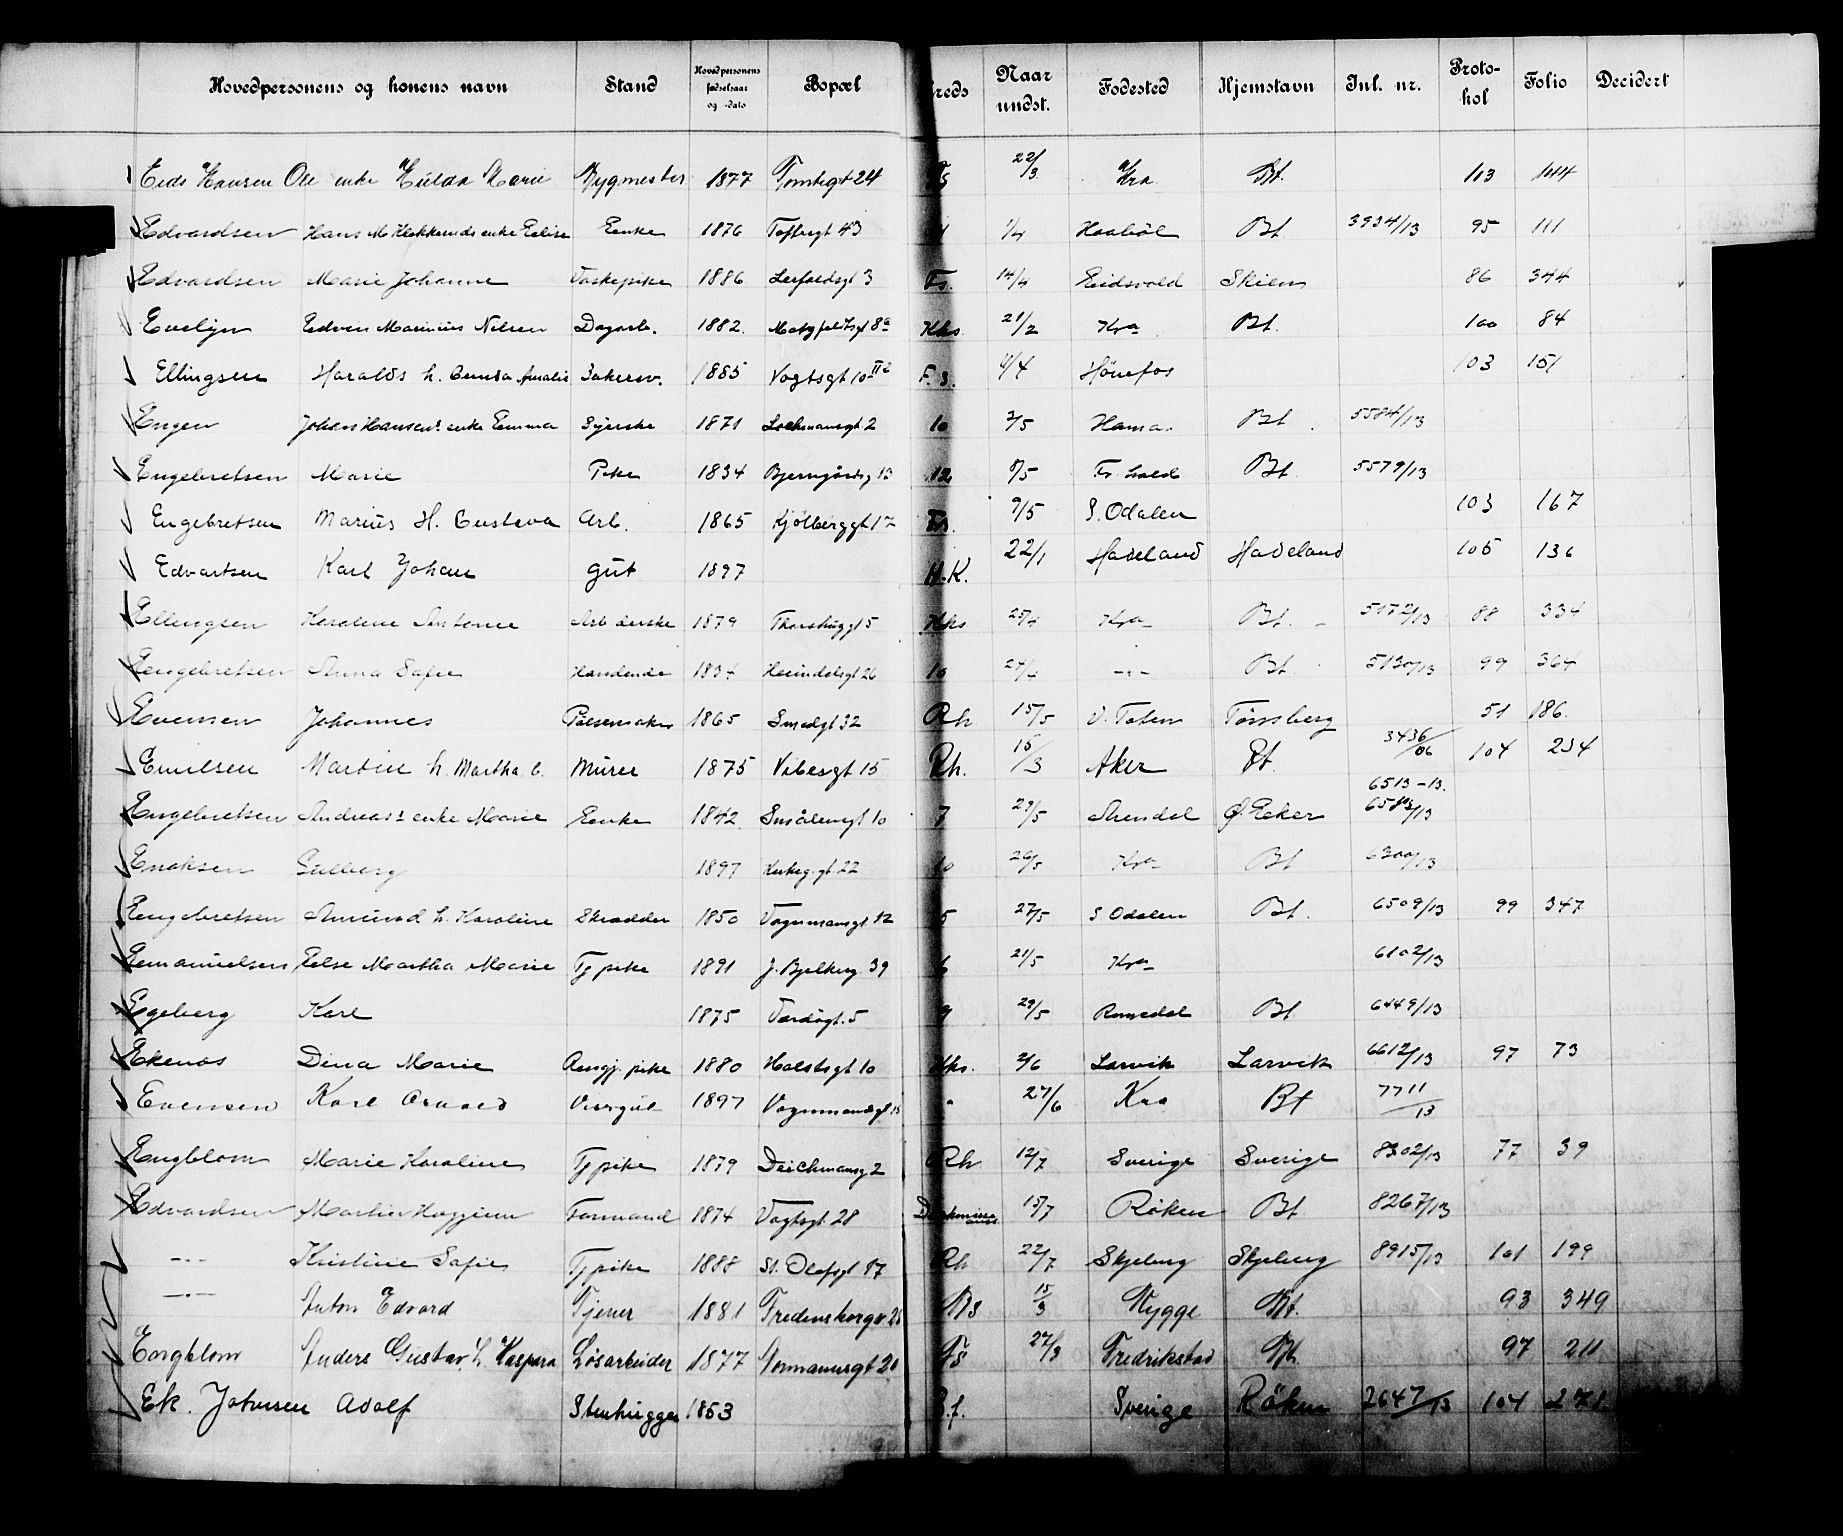 Hovedpersonens og konens navn Stand Hovedpersonens fødselsaar og -dato Bopæl Kreds Naar undst. Fødested Hjemstavn Inl. nr. Proto-kol Folio Decidert
Eids Hansen Ole enke Hulda Marie Bygmester 1877 Tomtegt 24 Fs 22/3 Kra Bt. 103 144
Edvardsen Hans enke Elise Enke 1876 Toftesgt 43 1/4 Haabøl Bt 3934/13 95 111
Edvardsen Marie Johanne Vaskepike 1886 Lerfaldsgt 3 Fs. 14/4 Eidsvold Skien 86 344
Evelyn Edvin Marinius Nilsen Dagarb. 1882. 8a Kks. 21/2 Kra Bt. 100 84
Ellingsen Haralds h. Gunda Amalie 1885 Vogtsgt 10 F.s. 4/4 Hønefos 103 151
Engen Johan Hansens enke Emma Syerske 1871 Lochmansgt 2 10 3/5 Hamar Bt. 5584/13
Engebretsen Marie Pike 1834 Bjerregårdsg 13 12 5/5 Fr.hald Bt 5579/13
Engebretsen Marius H. Gustava Arb. 1865 Kjølberggt 17 Fs. 9/5 S. Odalen 103 167
Edvartsen Karl Johan gut 1897 H.K. 22/1 Hadeland Hadeland 105 136
Ellingsen Karoline Antonie Arb derske 1879 Thorshuggt 5 Kks 25/4 Kra Bt. 5172/13 88 334
Engebretsen Anna Safie Handlende 1834 Heimdalsgt 26 10 24/4 -"- Bt 5130/13 99 364
Evensen Johannes Pølsemaker 1865 Smedgt 32 Rh 15/5 V. Toten Tønsberg 51 186.
Emilsen Martin h. Martha C. Murer 1875 Vibesgt 15 Rh. 15/3 Aker Bt. 3436/06 104 234
6513-13.
Engebretsen Andreas's enke Marie Enke 1842. Smålensgt 10 7 29/5 Arendal Ø. Eker /13
Enoksen Solberg 1897 Kirkeg.gt 22 10 26/5 Kra Bt 6300/13
Engebretsen Amund h. Karoline Skrædder 1850 Vognmansgt 12 5 27/5 S Odalen Bt. 6509/13 99 347
Emanuelsen Else Martha Marie Tjpike 1891 J. Bjelkesg 39 6 21/5 Kra 6102/13
Egeberg Karl 1875 Vardøgt. 5 9 29/5 Romedal Bt 6449/13
Ekenæs Dina Marie Rengj. pike 1880 Holstsgt 10 Kks. 2/6 Larvik Larvik 6612/13 97 73
Evensen Karl Visergut 1897 Vognmandsgt 15 " 27/6 Kra Bt 7711/13
Engblom Marie Karoline Tjpike 1879 Deichmansg 2 Rh 12/7 Sverige Sverige 8302/13 77 39
Edvardsen Martin Formand 1874 Vogtsgt 28 15/7 Røken Bt. 8267/13
-"- Kristine Safie Tjpike 1888 St. Olafsgt 17 Rh 22/7 Skjeberg Skjeberg 8915/13 101 199
-"- Anton Edvard Tjener 1881 Fredensborgv 25 15/3 Rygge Bt. 93 349
Engblom Anders Gustav h. Kaspara Løsarbeider 1877 Normannsgt 20 Fs 27/3 Fredrikstad Bt. 97 211
Ek. Johnsen Adolf Stenhugger 1853 Sverige Røken 2647/13 104 271